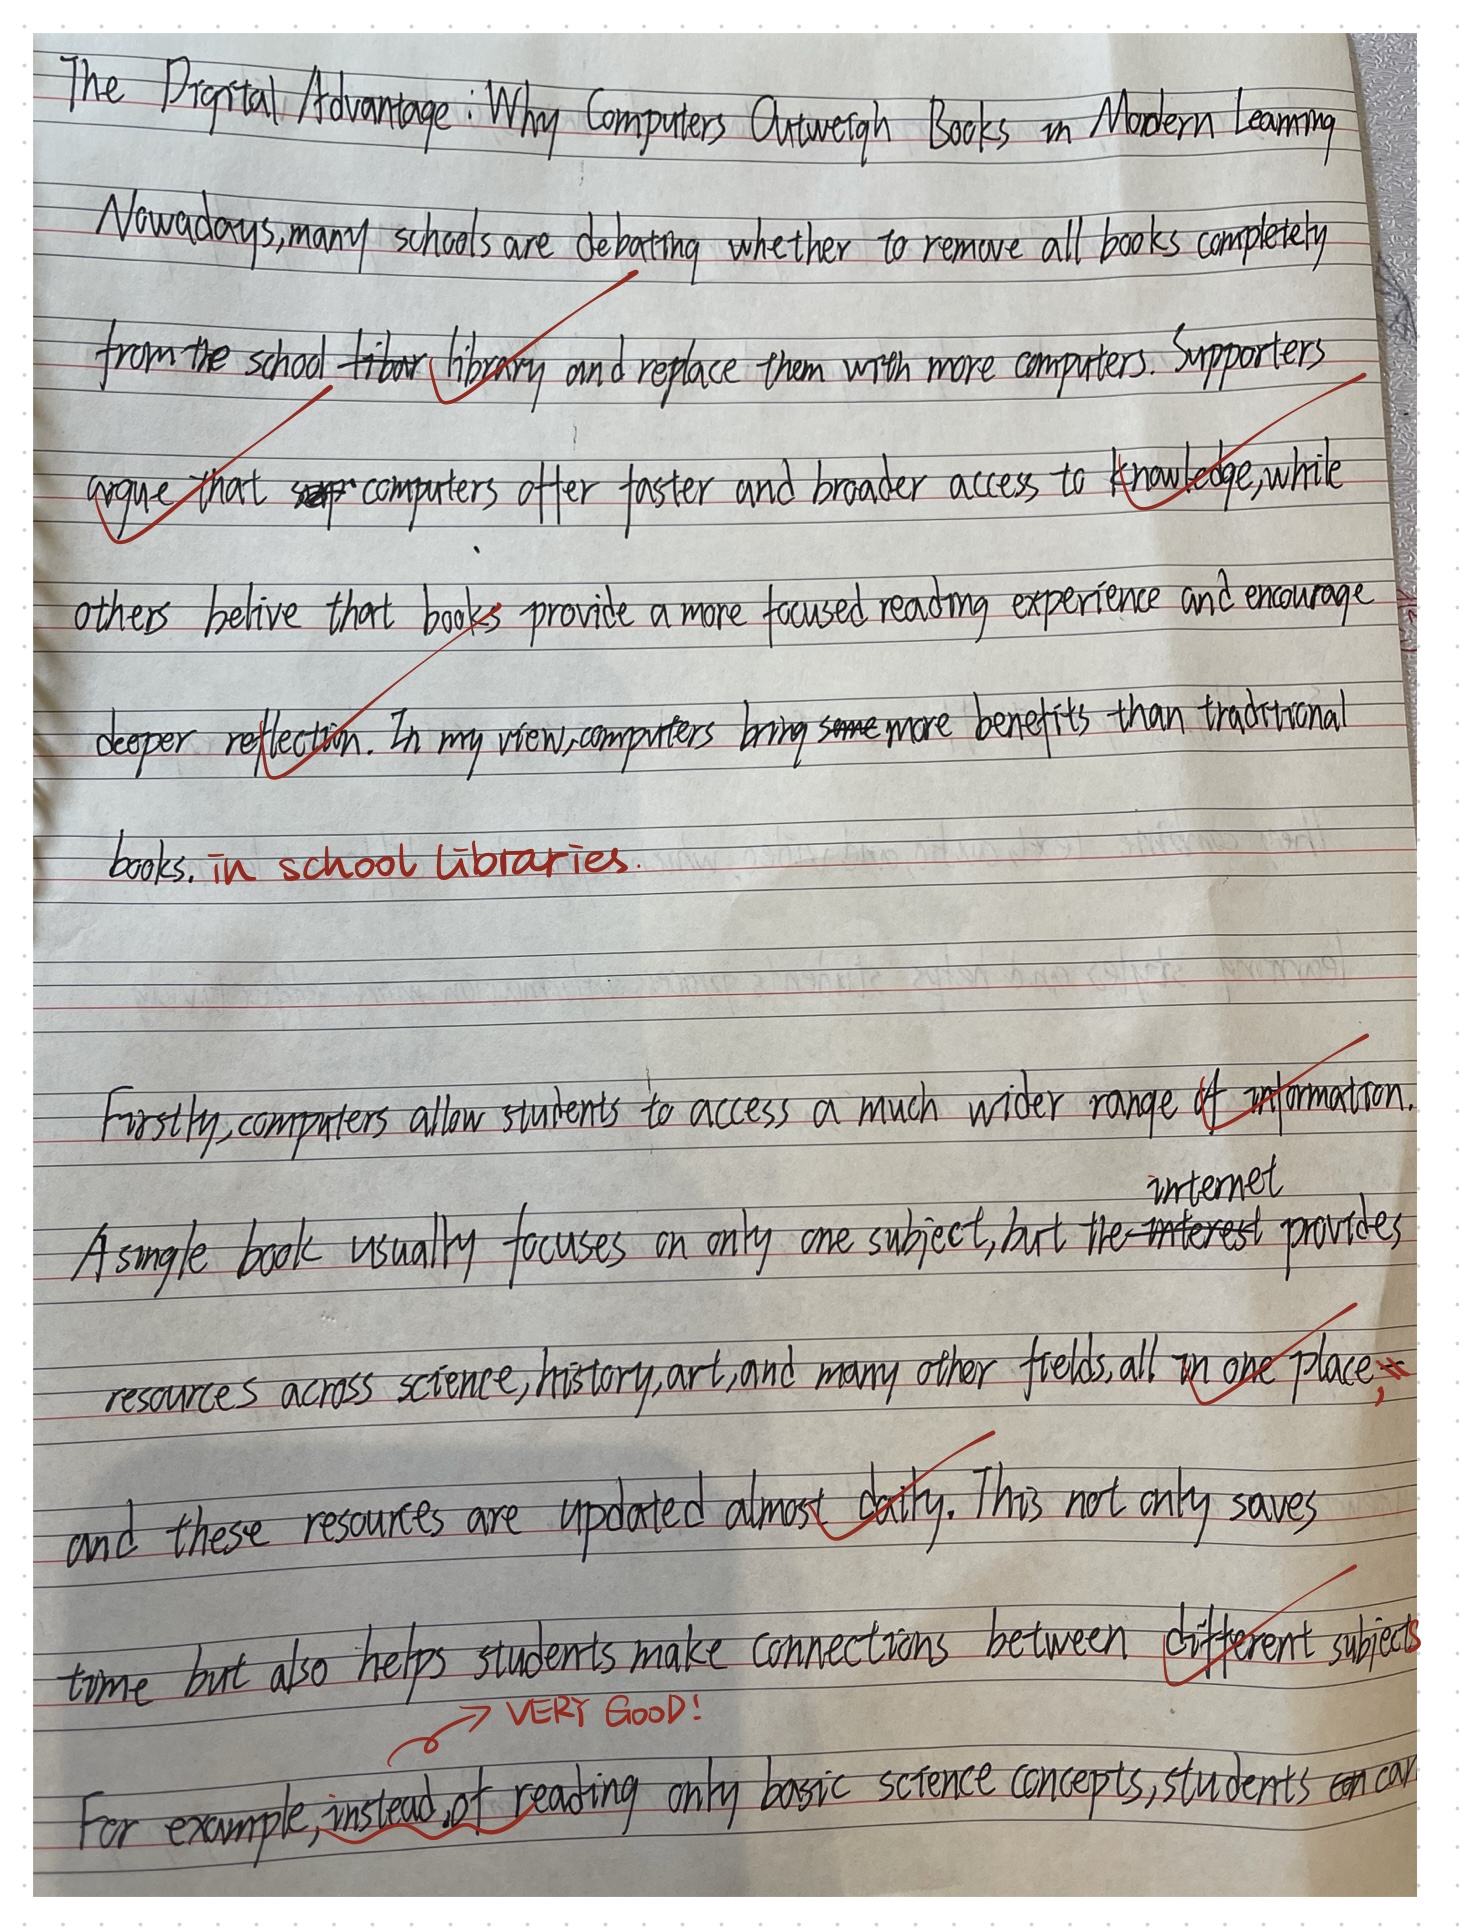 The Digital Advantage: Why Computers Outweigh Books in Modern Learning
Nowadays, many schools are debating whether to remove all books completely
from the school libar library and replace them with more computers. Supporters
argue that computers offer faster and broader access to knowledge, while
others belive that books provide a more focused reading experience and encourage
deeper reflection. In my view, computers bring some more benefits than traditional
books. in school libraries.
Firstly, computers allow students to access a much wider range of information.
internet
A single book usually focuses on only one subject, but the interest provides
resources across science, history, art, and many other fields, all in one place,
and these resources are updated almost daily. This not only saves
time but also helps students make connections between different subjects
VERY GOOD!
For example, instead of reading only basic science concepts, students can can